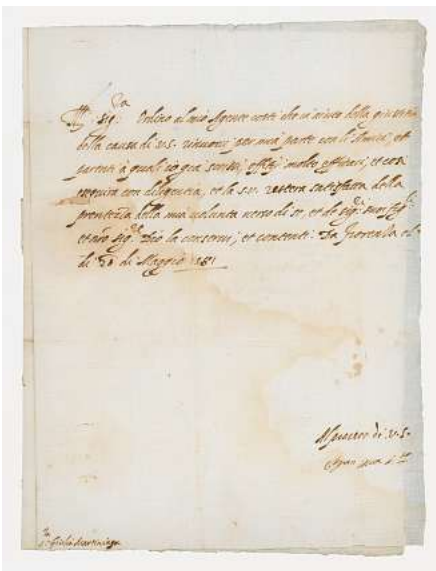 Ill. Sig.ra Ordino al mio Agente costì che in aiuto della giustitia
della causa di V.S. rinuovi per mia parte con li Amici, et
parenti à quali io già scrissi, offitij molto efficaci, et così
eseguirà con diligentia, et la S.V. resterà satisfatta della
prontezza della mia volontà verso di se, et de Sig.ri suoi figli
et nro Sig. Dio la conservi, et contenti. Da Fiorenza el
dì 20 di Maggio 1581
Al piacer di V.S.
Il gran duca di